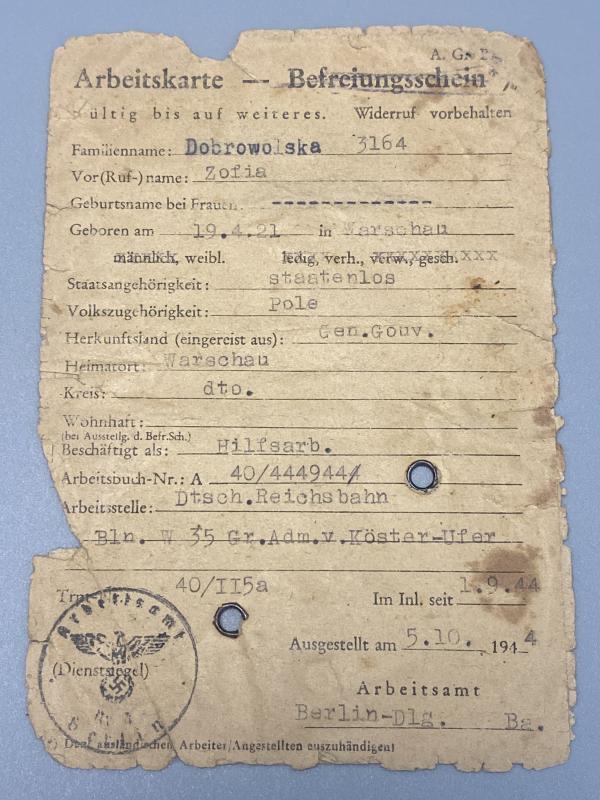 A. G.
Arbeitskarte — Befreiungsschein
ültig bis auf weiteres. Widerruf vorbehalten
Familienname: Dobrowolska 3164
Vor(Ruf-)name: Zofia
Geburtsname bei Frauen: -------------
Geboren am 19.4.21 in Warschau
männlich, weibl. ledig, verh., verw., gesch. xxx
Staatsangehörigkeit: staatenlos
Volkszugehörigkeit: Pole
Herkunftsland (eingereist aus): Gen.Gouv.
Heimatort: Warschau
Kreis: dto.
Wohnhaft:
(bei Ausstellg. d. Befr.Sch.)
Beschäftigt als: Hilfsarb.
Arbeitsbuch-Nr.: A 40/444944/
Arbeitsstelle: Dtsch.Reichsbahn
Bln. W 35 Gr.Adm.v.Köster-Ufer
40/II5a Im Inl. seit 1.9.44
Ausgestellt am 5.10. 1944
Arbeitsamt
(Dienstsiegel)
Arbeitsamt
Berlin
Berlin-Dlg. Ba.
Dem ausländischen Arbeiter/Angestellten auszuhändigen!